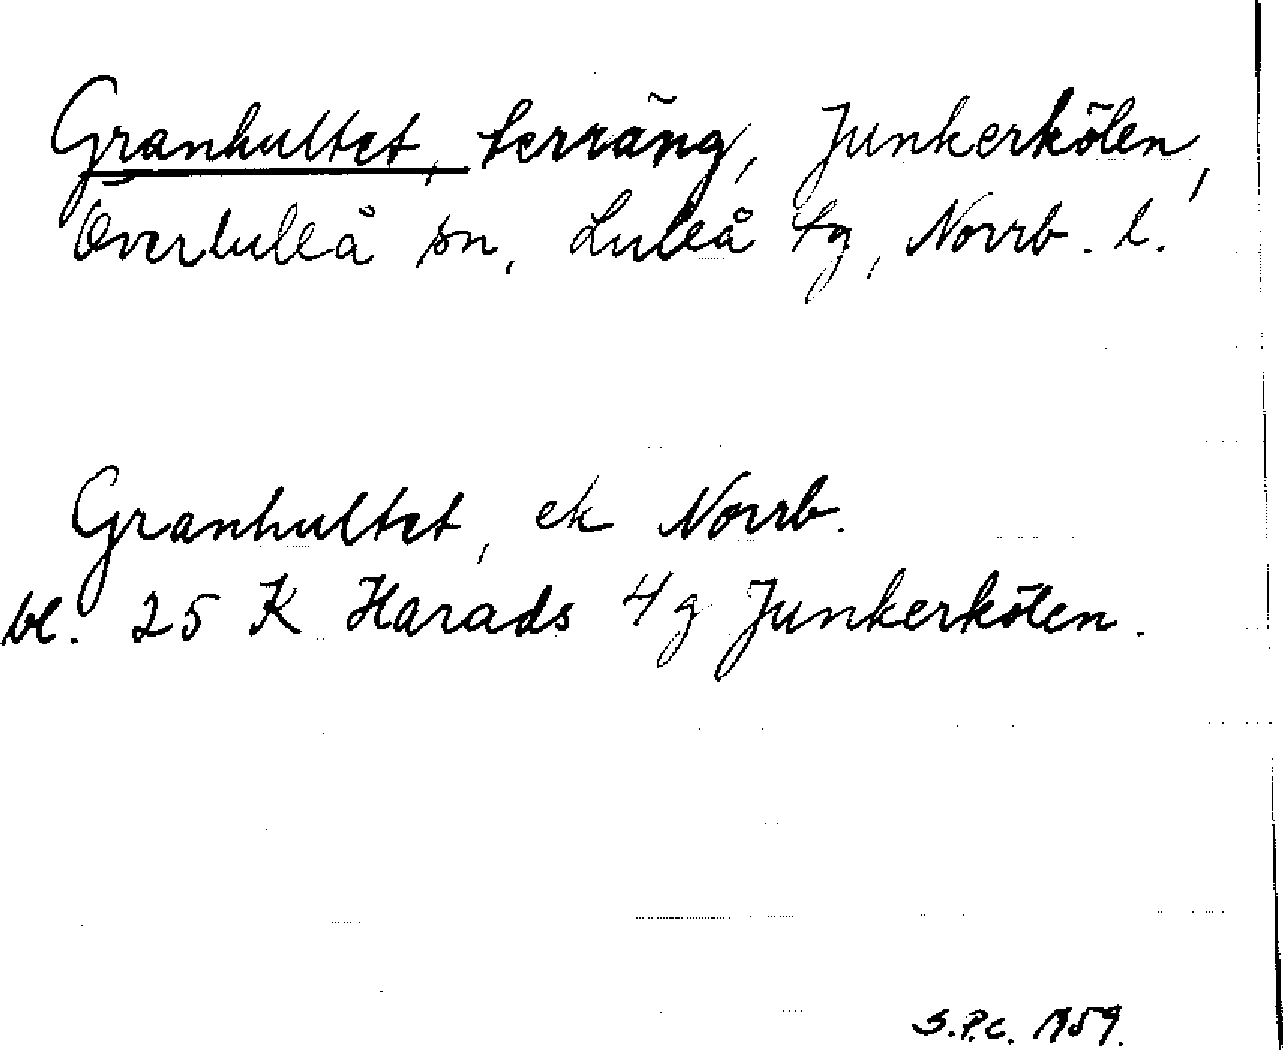 Granhultet, terräng, Junkerkölen,
Överluleå sn, Luleå tg, Norrb. l.
Granhultet, ek Norrb.
bl. 25 K Harads 4g Junkerkölen.
S.P.C. 1959.